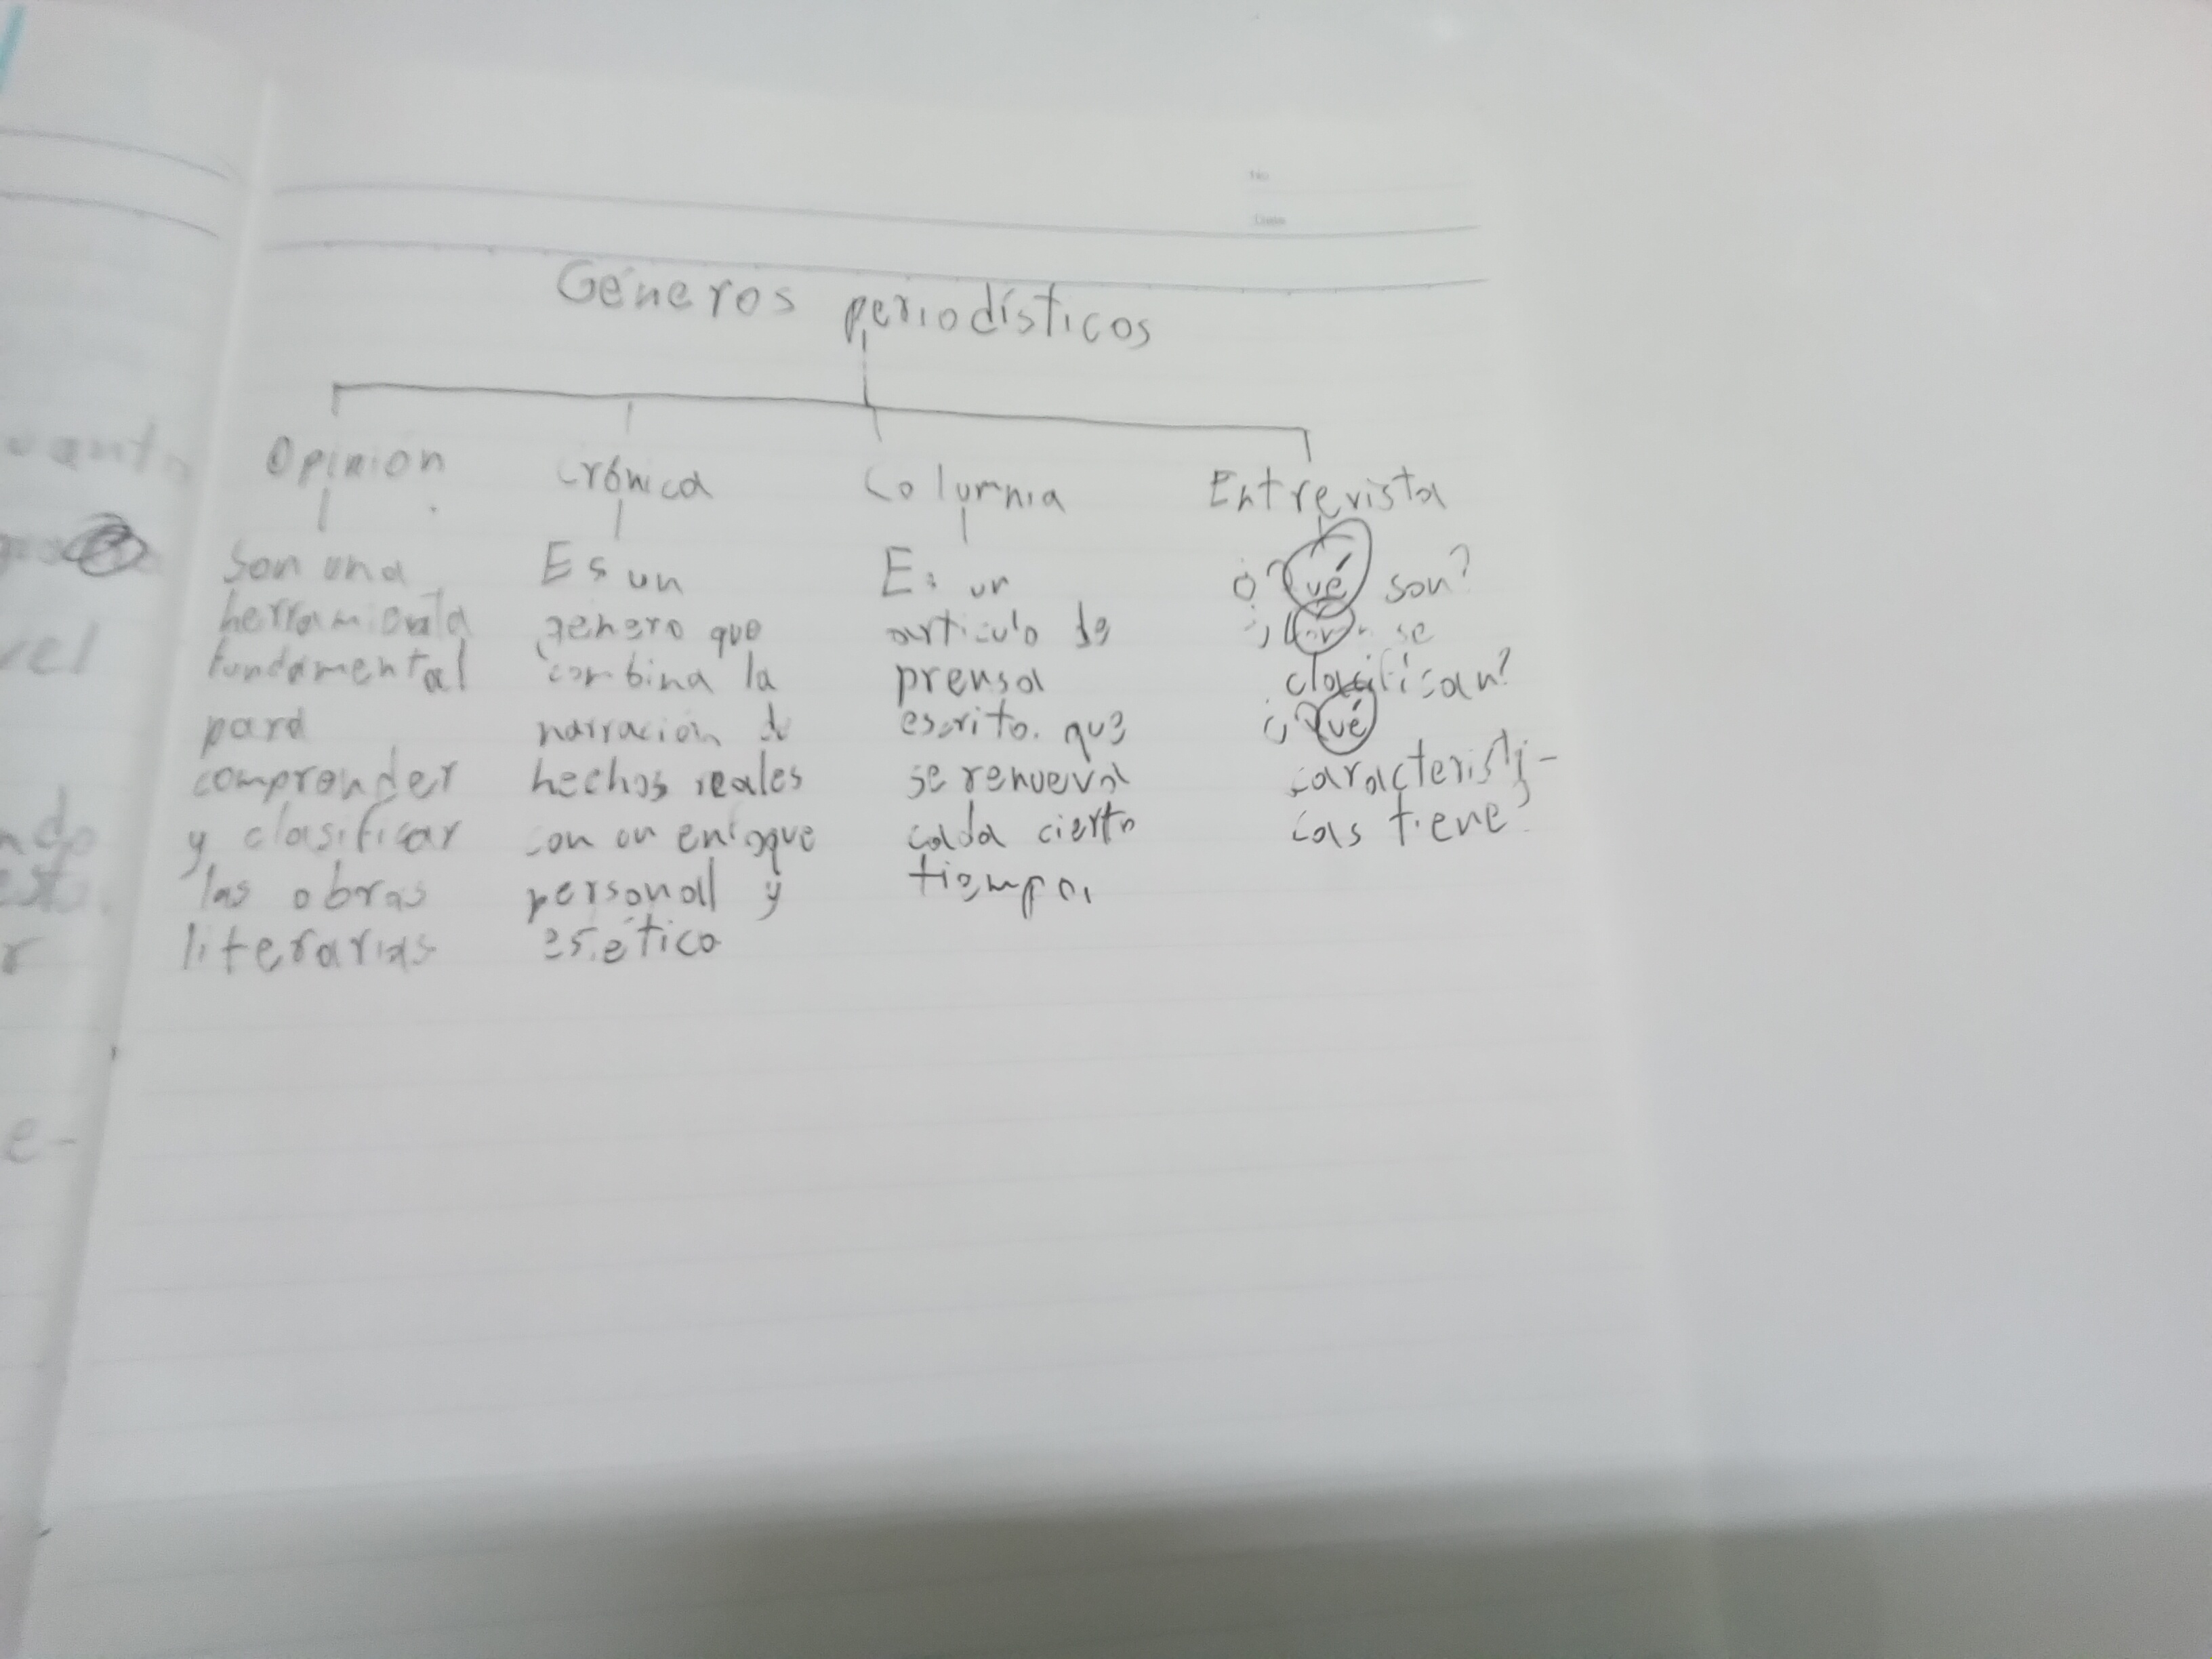 No.
Date
Géneros periodísticos
Opinión
Son una
herramienta
fundamental
para
comprender
y clasificar
las obras
literarias
Crónica
Es un
género que
combina la
narración de
hechos reales
con un enfoque
personal y
estético
Columnia
Es un
articulo de
prensa
escrito. que
se renueva
cada cierto
tiempo.
Entrevista
¿Qué son?
se
clasifican?
¿Qué
caracteristi-
cas tiene?
vel
e-